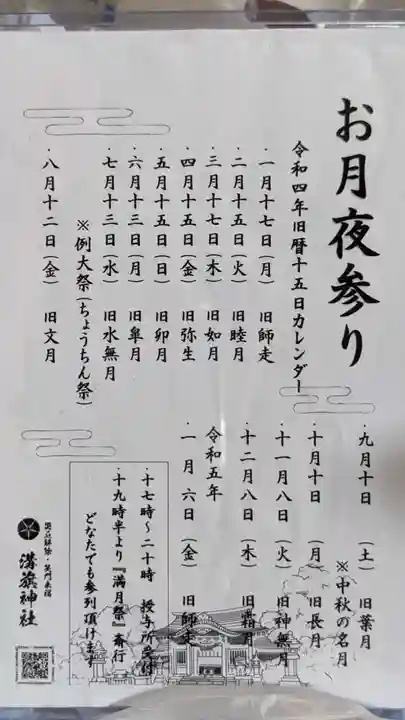 お月夜参り
令和四年旧暦十五日カレンダー
・一月十七日(月) 旧師走
・二月十五日(火) 旧睦月
・三月十七日(木) 旧如月
・四月十五日(金) 旧弥生
・五月十五日(日) 旧卯月
・六月十三日(月) 旧皐月
・七月十三日(水) 旧水無月
※例大祭(ちょうちん祭)
・八月十二日(金) 旧文月
・九月十日 (土) 旧葉月
※中秋の名月
・十月十日 (月) 旧長月
・十一月八日 (火) 旧神無月
・十二月八日 (木) 旧霜月
令和五年
・一月 六日 (金) 旧師走
・十七時〜二十時 授与所受付
・十九時半より『満月祭』斎行
どなたでも参列頂けます
溝旗神社